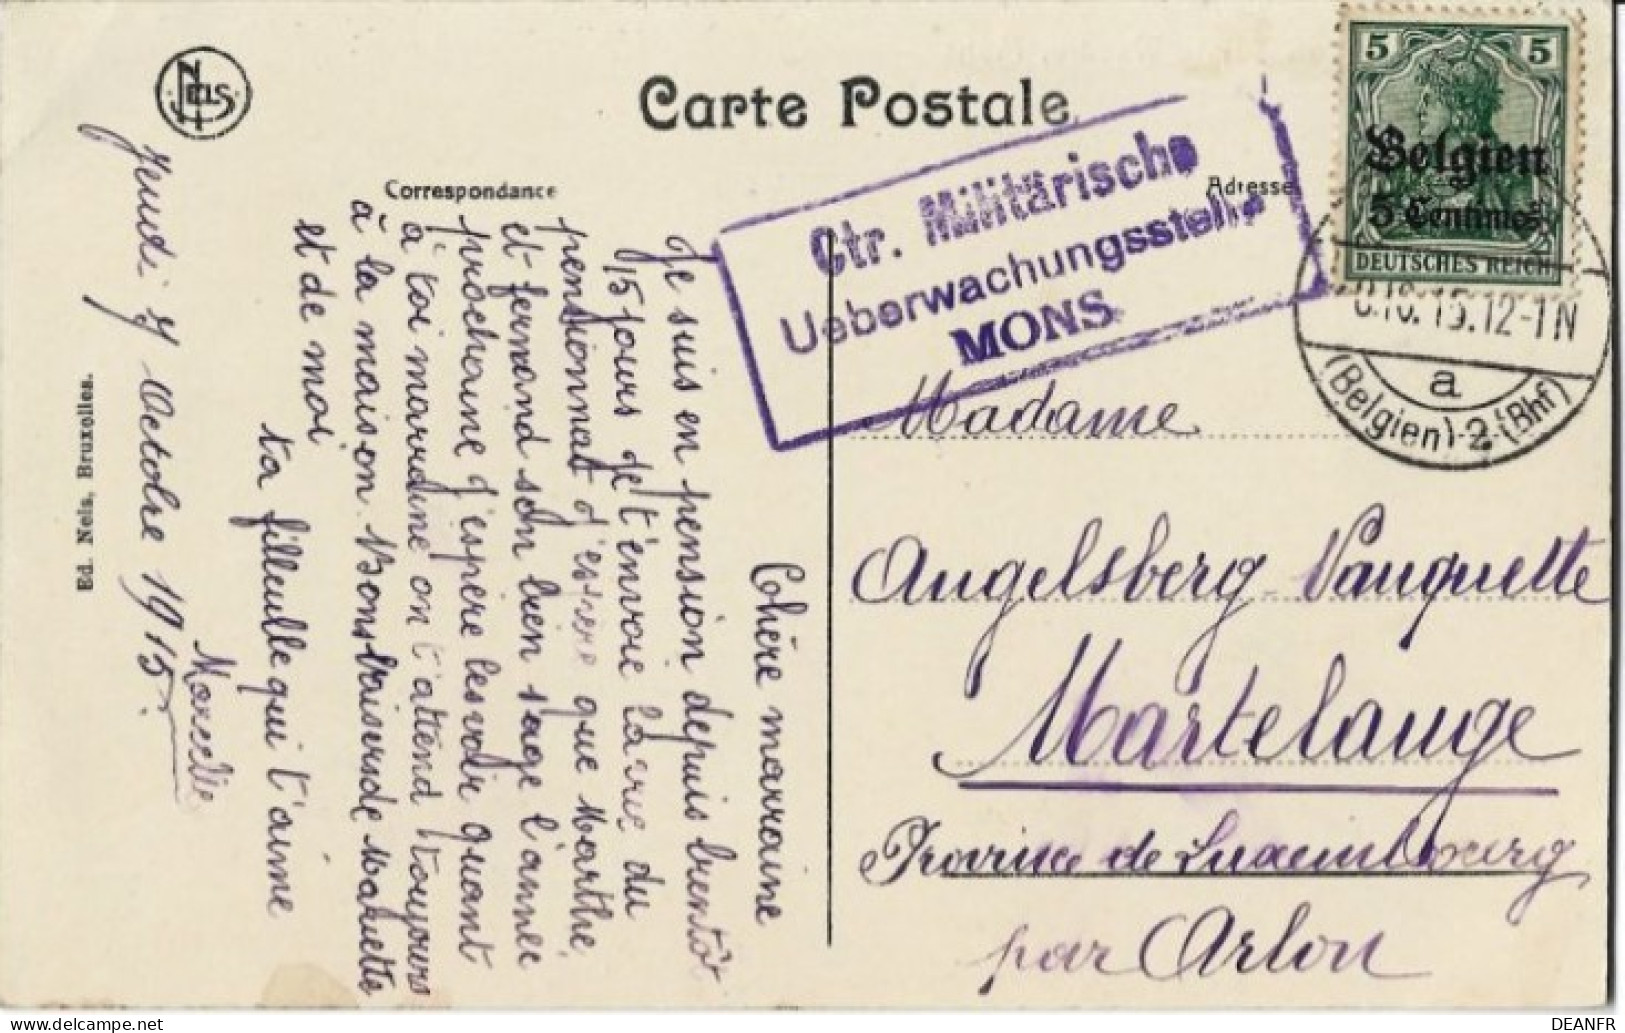 NELS
Carte Postale
Correspondance
Adresse
5 5
Belgien
5 Centimes
DEUTSCHES REICH
Ctr. Militärische
Ueberwachungsstelle
MONS
8.10.15.12-1N
a
(Belgien) 2 (Bhf)
Ed. Nels, Bruxelles.
Jeudi 7 Octobre 1915.
Chère marraine
Je suis en pension depuis bientôt
15 jours je t'envoie la vue du
pensionnat j'espère que Marthe,
et fernand son bien sage l'année
prochaine j'espère les voir quant
à toi marraine on t'attend toujours
à la maison. Bons baisers de Mariette
et de moi
ta filleulle qui t'aime
Marcelle
Madame
Angelsberg-Vauquette
Martelange
Province de Luxembourg
par Arlon
DEANFR
delcampe.net